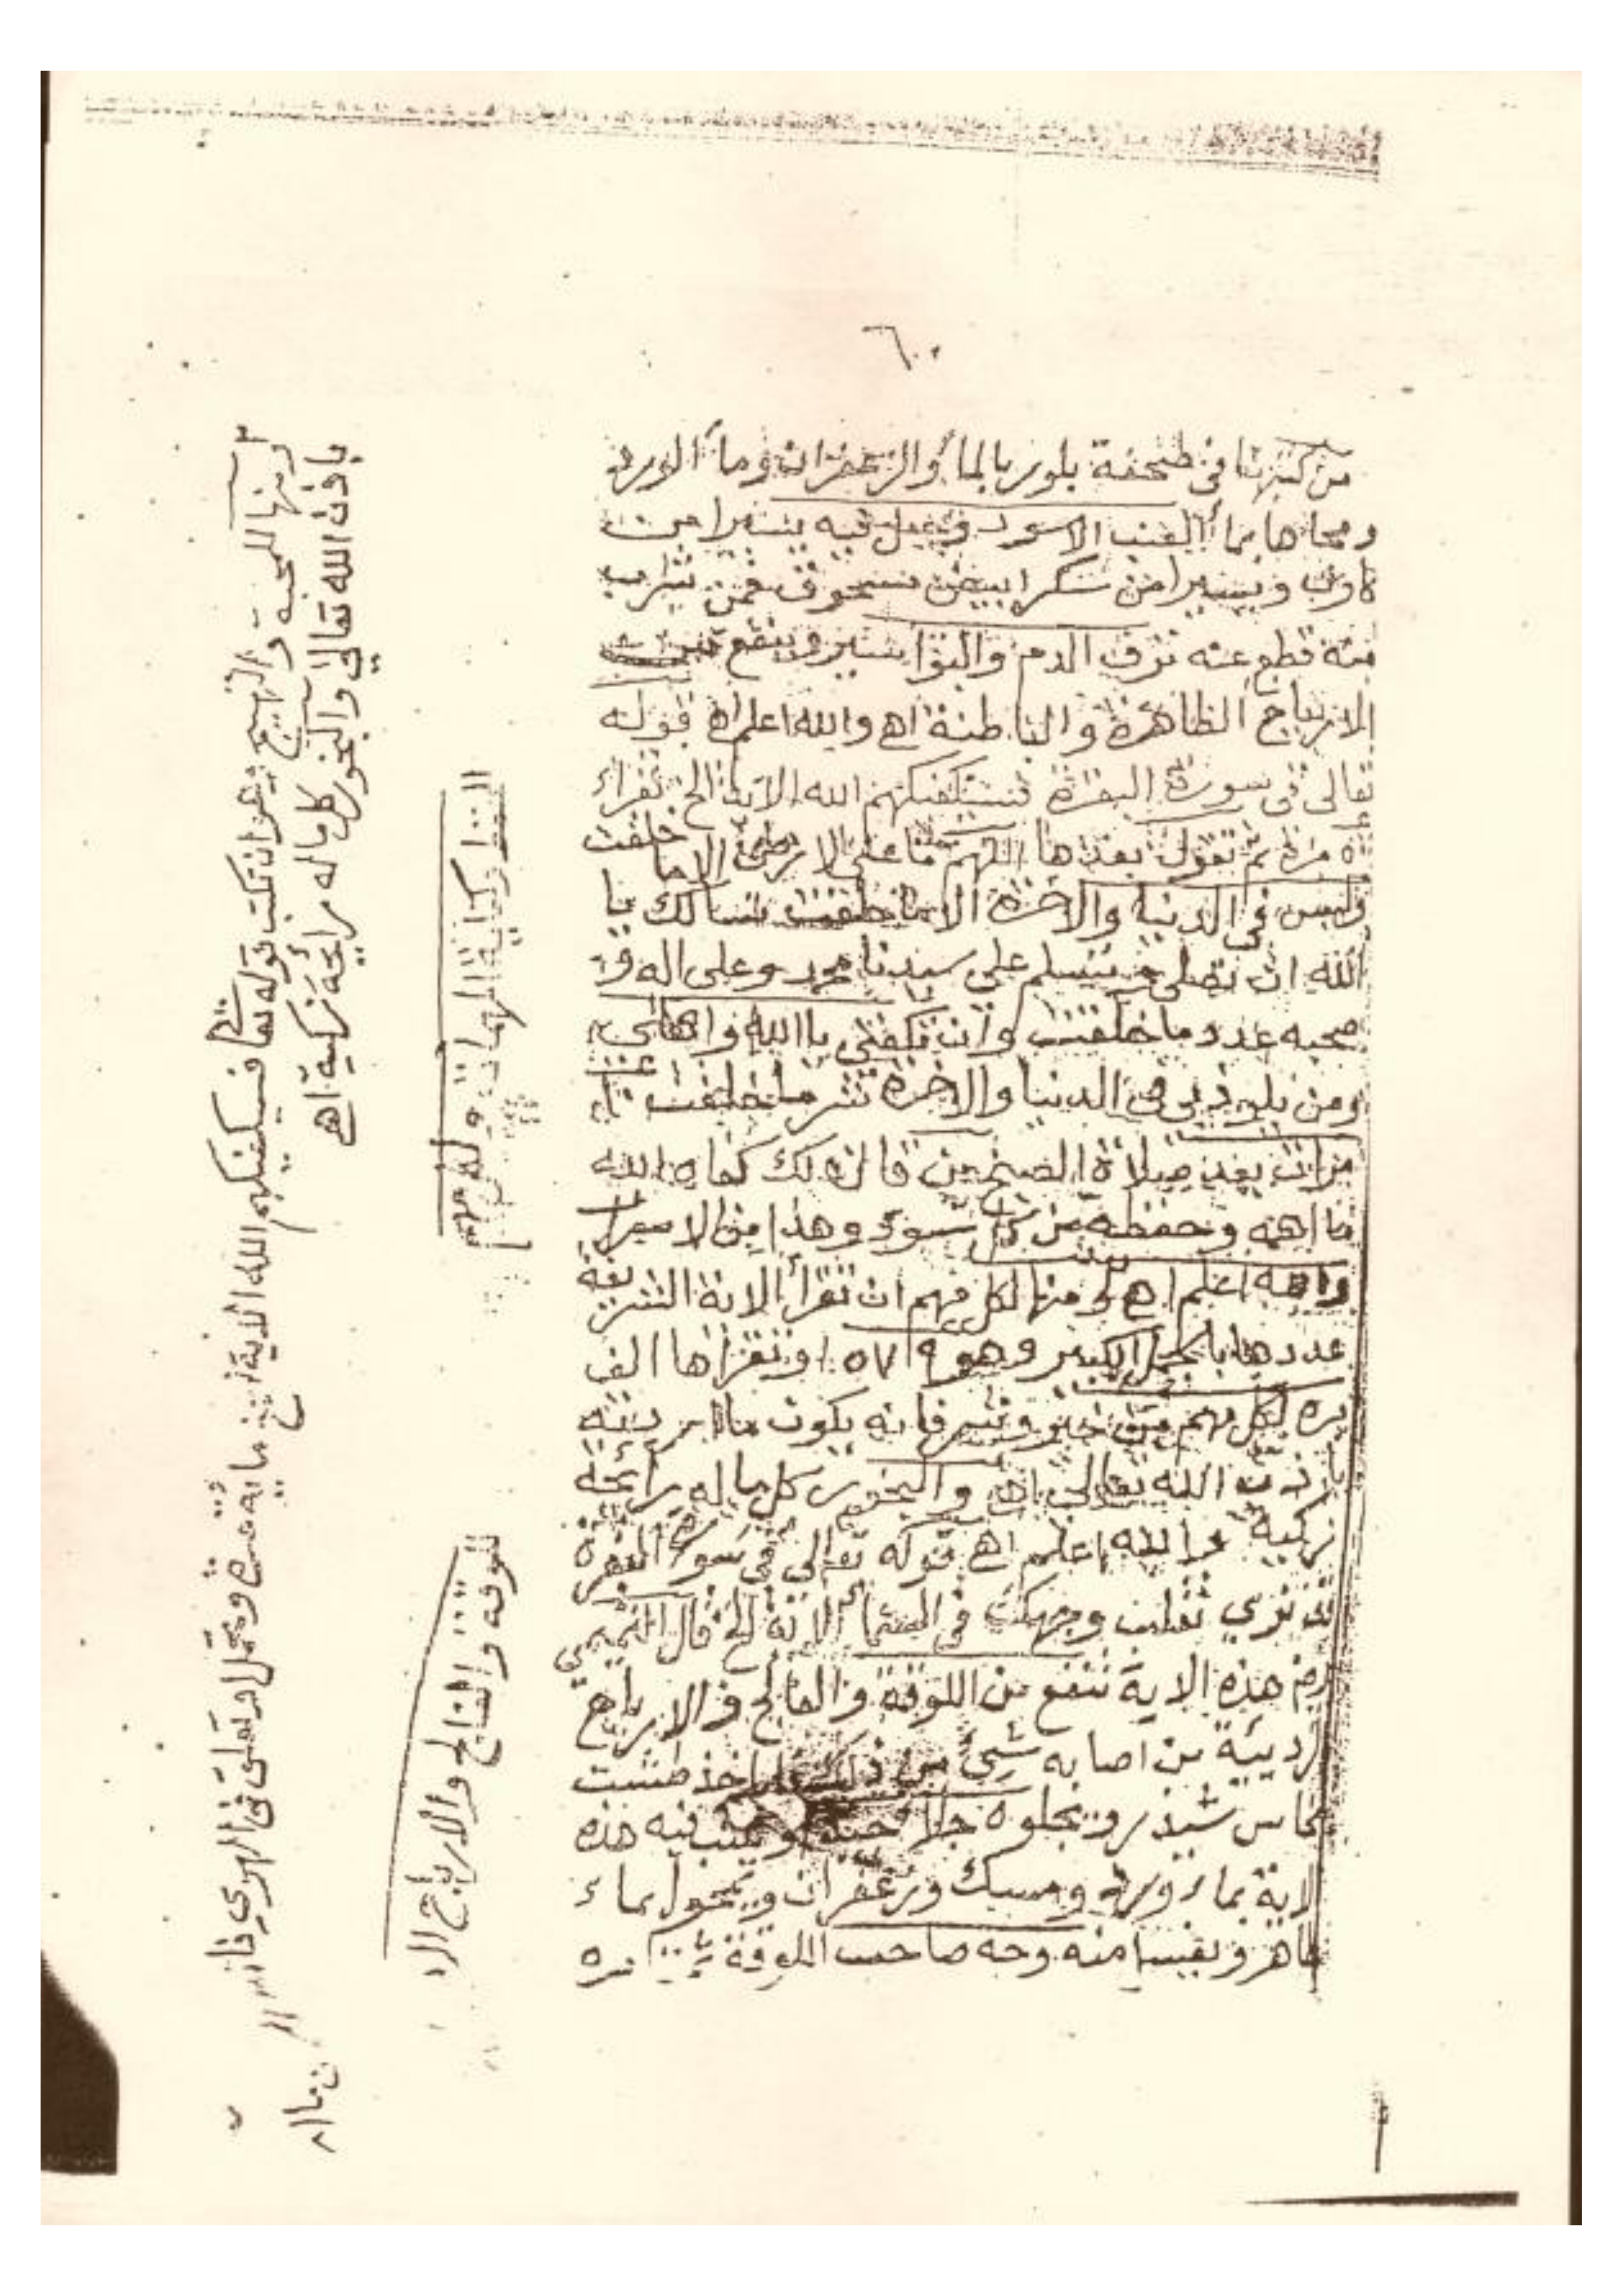 ٦٠
من كتبها في صحفة بلور بالمأ والزعفران ومأ الورد
ومحاها بمأ العنب الاسود ويجعل فيه يسيرا من
كاور ويسيرا من سكر ابيض مسحوق فمن شرب
منه قطع عنه نزف الدم والبواسير وينفع من
الارياح الظاهرة والباطنة اهـ والله اعلم اهـ قوله
تعالى في سورة البقرة فسيكفيكهم الله الاية الخ تقراء
مرة ثم تقول بعدها اللهم ما على الارض الا ما خلقت
وليس في الدنيا والاخرة الا ما خلقت نسالك يا
الله ان تصلي وتسلم على سيدنا محمد وعلى اله و
صحبه عدد ما خلقت وان تكفني يا الله واهلي
ومن يلوذ بي في الدنيا والاخرة شر ما خلقت
مرات بعد صلاة الصبح من قال ذلك كفاه الله
ما اهمه وحفظه من كل سوء وهذا من الاسرار
والله اعلم اهـ ومنها لكل مهم ان تقرأ الاية الشريفة
عددها بالجمل الكبير وهو وتقراها الف
مره لكل مهم من خير وشر فانه يكون ما تريده
باذن الله تعالى اهـ والبخور كل ما له رائحة
زكية والله اعلم اهـ قوله تعالى في سورة البقرة
قد نرى تقلب وجهك في السمأ الاية الخ قال التميمي
هذه الاية تنفع من اللوقة والفالج والارياح
الرديئة من اصابه شيئ من ذلك فلياخذ طشت
نحاس ويجلوه جلا جيدا ويكتب فيه هذه
الاية بماء ورد ومسك وزعفران ويمحوا بماء
طاهر ويغسل منه وجه صاحب اللوقة مره
لكفاية المهمات ولكل مهم
للوقة والفالج والارياح الرد
ومنها للمحبة والتهييج وهو ان تكتب قوله تعالى فسيكفيكهم الله الاية وتحمل او تعلق في الهوى فانه
باذن الله تعالى والبخور كل ما له رائحة زكية اهـ